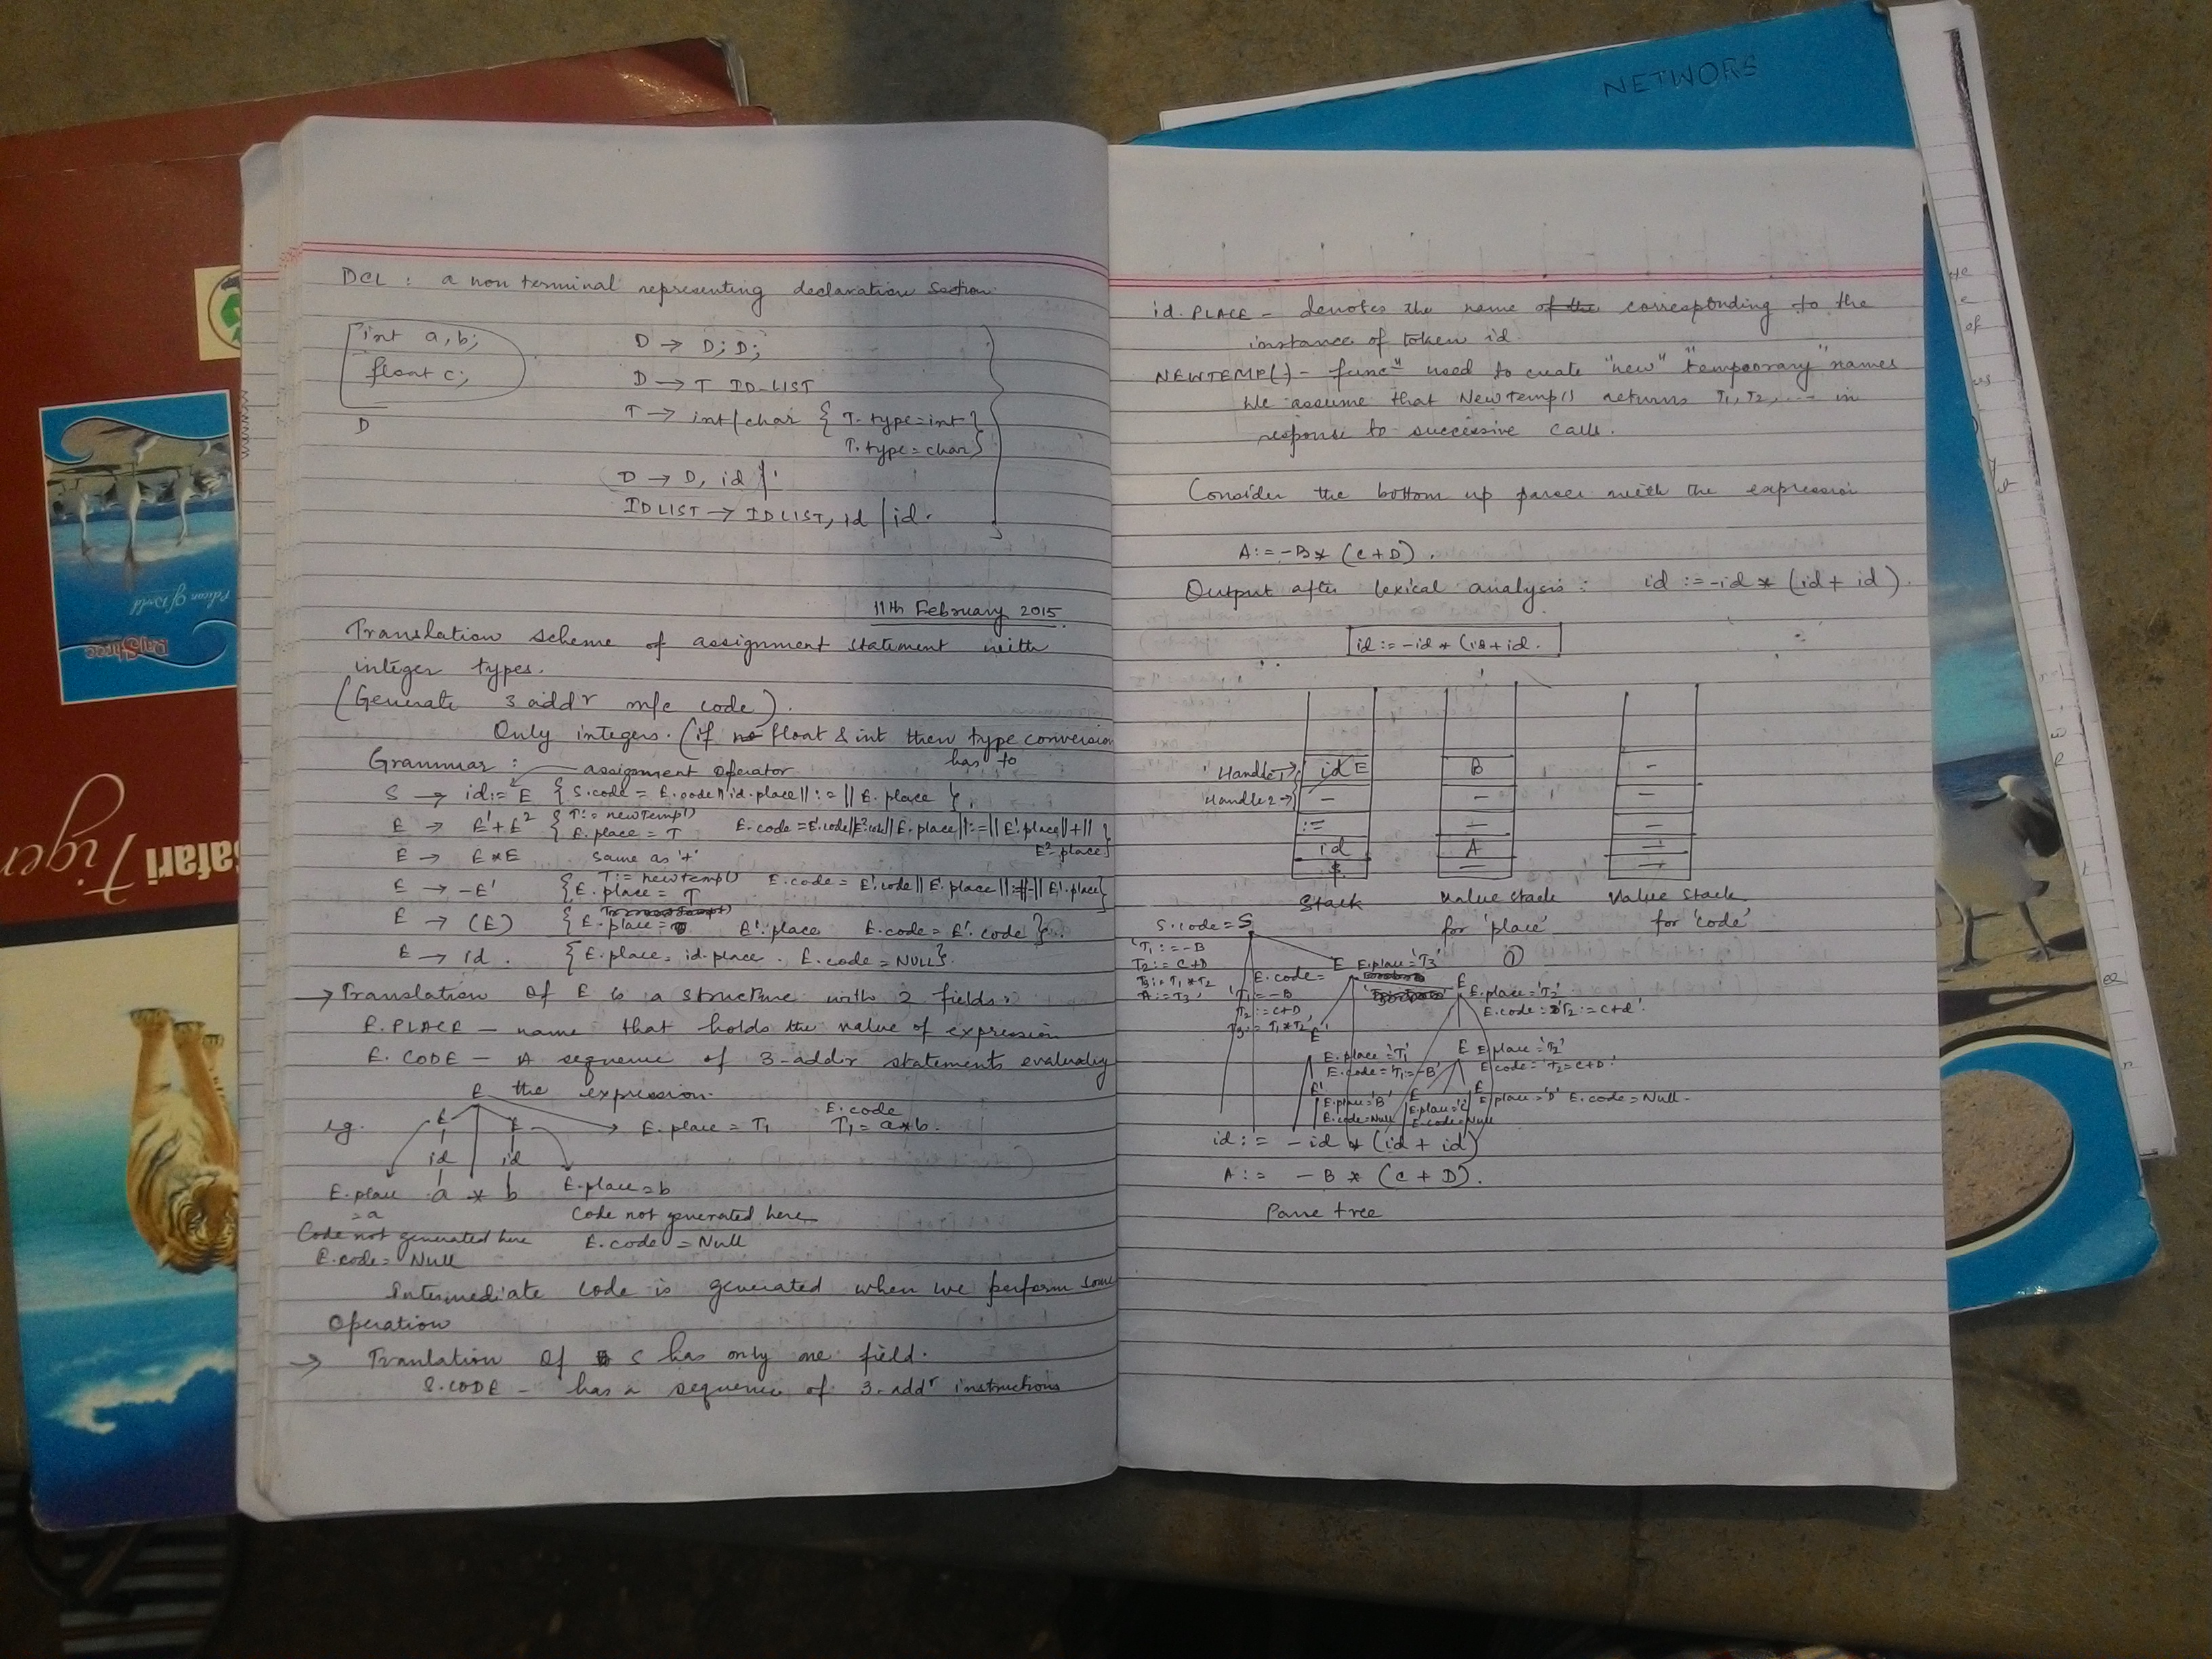 DCL : a non terminal representing declaration section.
int a,b;
float c;
D
D → D; D;
D → T ID-LIST
T → int/char { T.type=int }
T.type=char}
(D → D, id }'
IDLIST → IDLIST, id / id.
11th February 2015
Translation scheme of assignment statement with
integer types.
(Generate 3 addr m/c code).
Only integers. (if float & int then type conversion
has to
Grammar :
assignment operator
S → id := E { S.code = E.code || id.place || := || E.place }
E → E¹+E² { T:= newtemp() E.place = T
E.code = E¹.code||E².code||E.place||:=||E¹.place||+||
E².place}
E → E*E same as '+'
E → -E¹ { T:= newtemp() E.place = T E.code = E¹.code || E.place || := - || E¹.place}
E → (E) { E.place = E¹.place E.code = E¹.code }
E → id. { E.place = id.place. E.code = NULL}.
→ Translation of E is a structure with 2 fields:
E.PLACE - name that holds the value of expression
E.CODE - A sequence of 3-addr statements evaluating
E the expression.
eg.
E → E.place = T₁ E.code
T₁ = a*b.
id id
E.place a * b E.place = b
= a
Code not generated here Code not generated here
E.code = Null E.code = Null
Intermediate code is generated when we perform some
operation
→ Translation of S has only one field.
S.CODE - has a sequence of 3-addr instructions
id.PLACE - denotes the name of the corresponding to the
instance of token id.
NEWTEMP() - funcn used to create "new" temporary names
We assume that Newtemp() returns T₁,T₂,... in
response to successive calls.
Consider the bottom up parser with the expression
A:= -B*(C+D).
Output after lexical analysis: id := -id * (id + id).
id := -id * (id+id.
'Handle 1 → id E B -
Handle 2 → - - -
:= - -
id A -
$ - -
Stack Value stack Value stack
for 'place' for 'code'
S.code = S
'T₁ := -B
T₂ := C+D
T₃ := T₁*T₂
A := T₃'
E.code = E E.place = 'T₃'
'T₁ := -B
T₂ := C+D
T₃ := T₁*T₂'
E E.place = 'T₂'
E.code = 'T₂ := C+d'
E.place = 'T₁'
E.code = 'T₁ = -B'
E E.place = 'T₂'
E.code = 'T₂ = C+D'
E.place = 'B' E.place = 'C' E.place = 'D' E.code = Null
E.code = Null E.code = Null
id := - id * (id + id)
A := - B * (C + D).
Parse tree
NETWORS
safari
Palm Grand